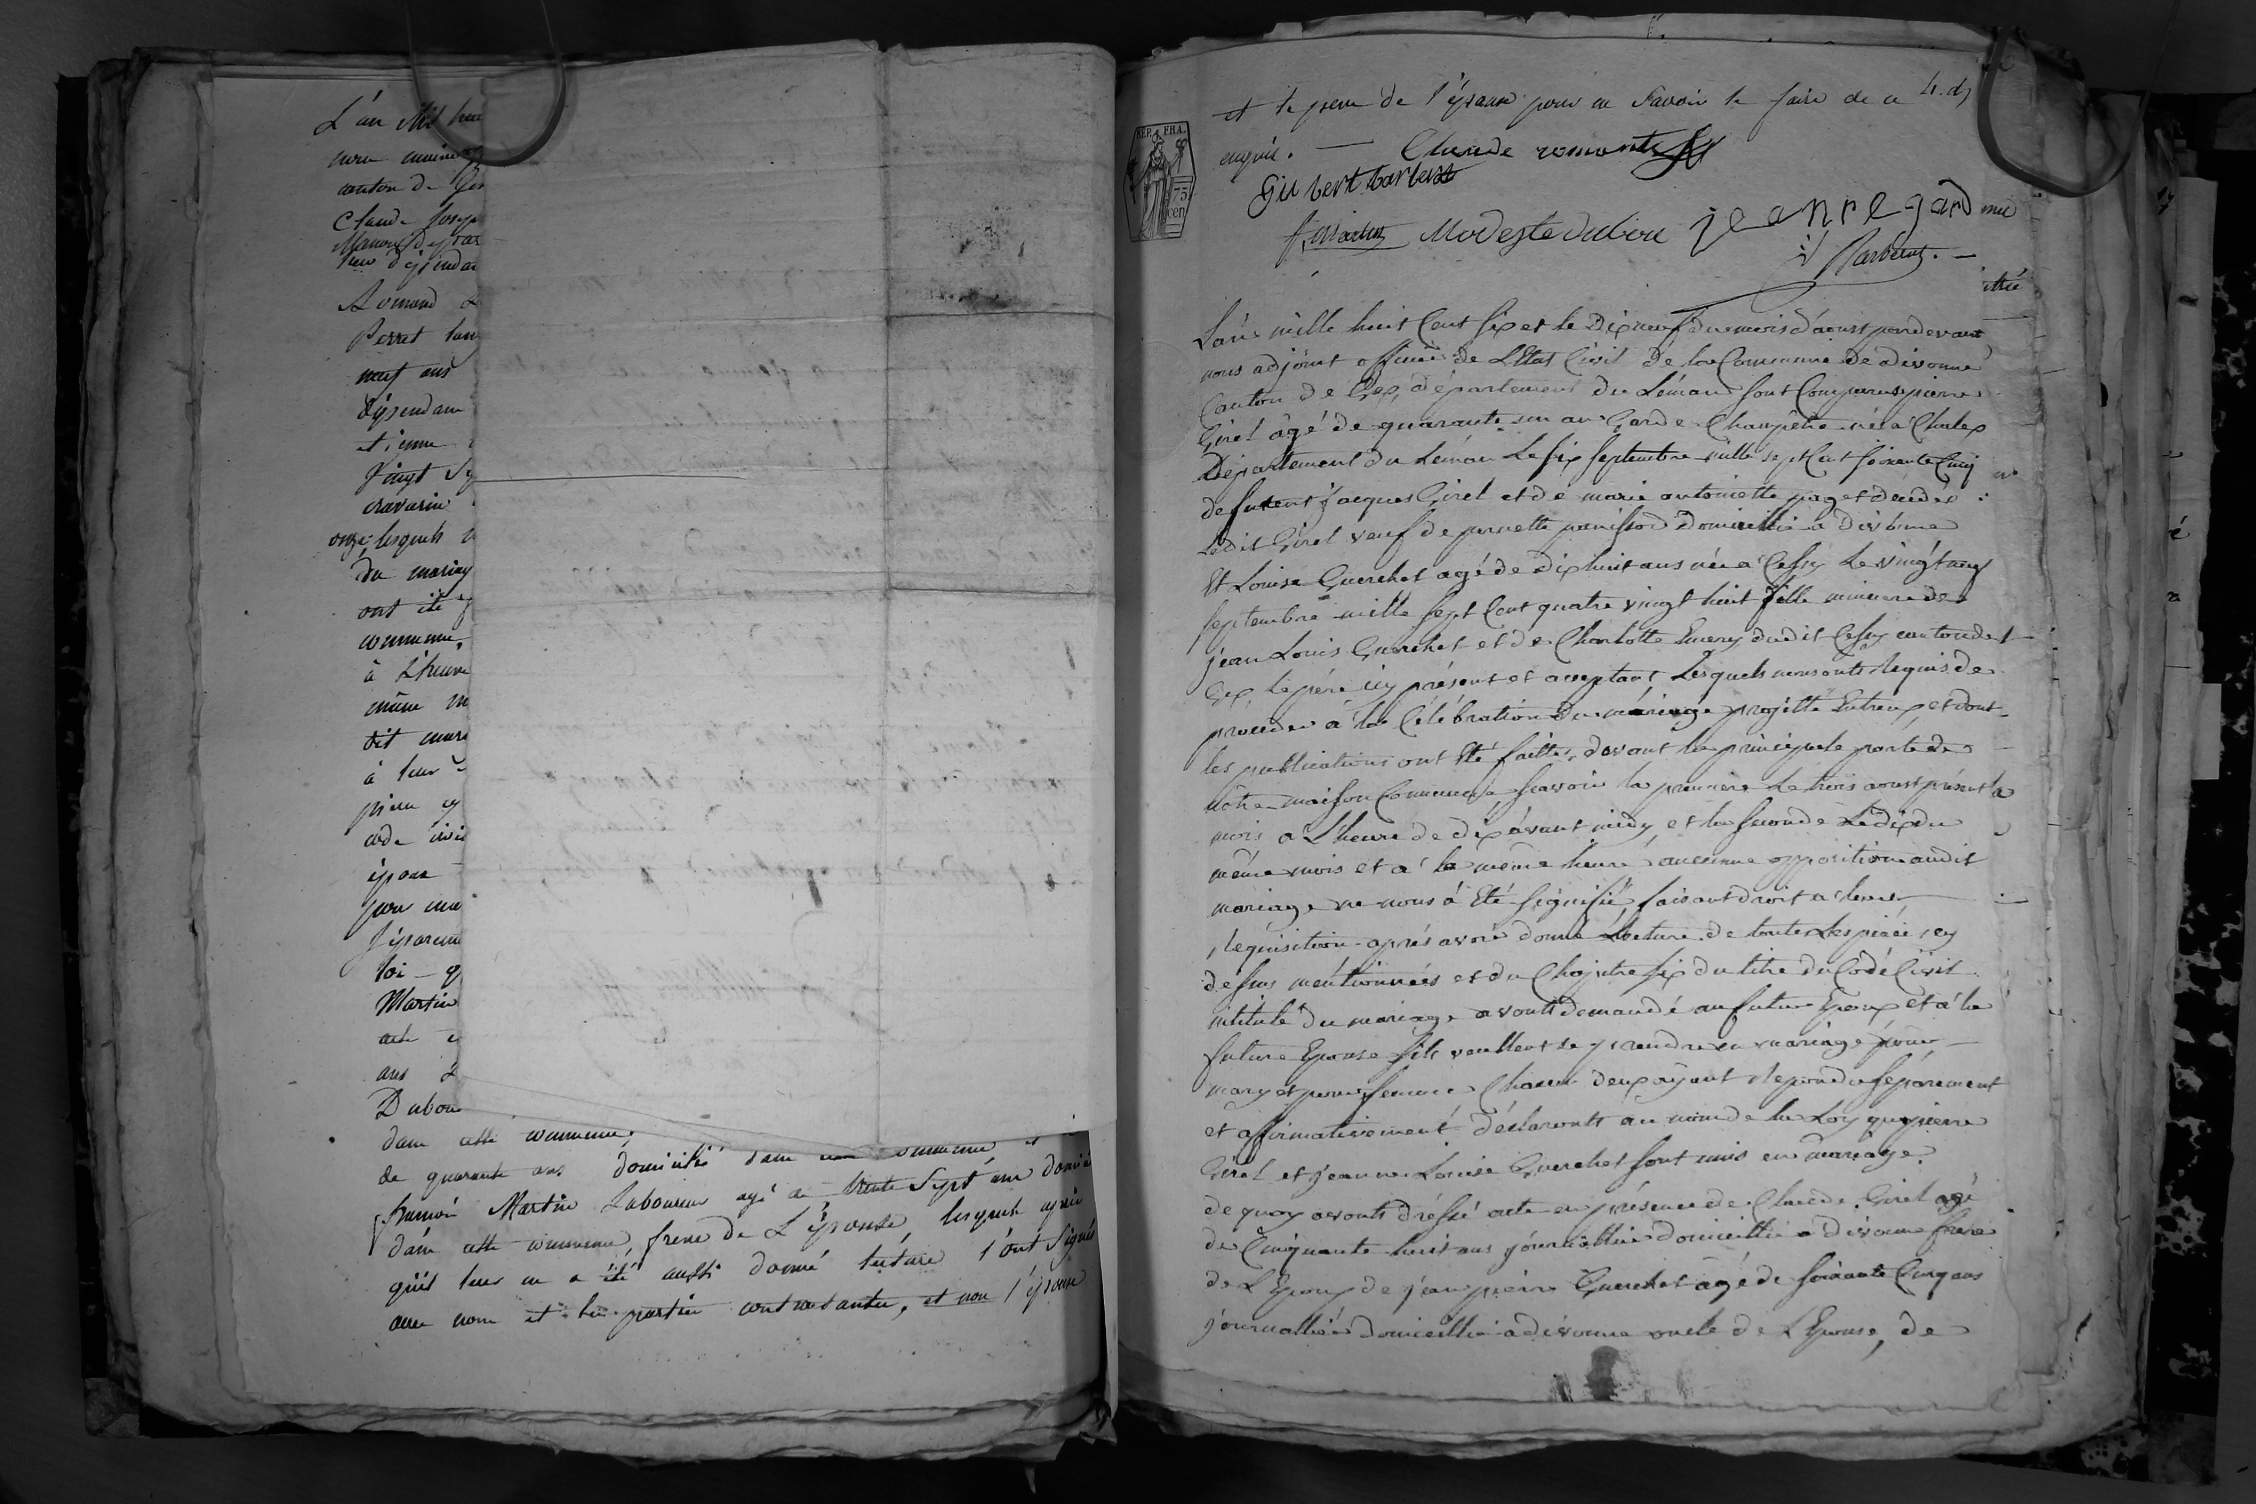 L'an Mil hui
canton de Gex
Claude Josep
Romand
Perret
neuf ans
dépendan
etienne
Vingt Se
onze, lesquels
du mariag
ont été
commune,
à L'heure
même m
dit mari
à leur
code civi
époux
pour mar
Séparem
loi - q
Martin
ans
Dubou
dans cette commune,
de quarante ans domicilié dans cette commune, et
Martin Laboureur agé de trente Sept ans domici
dans cette commune, frere de L'épouse, lesquels après
qu'il leur en a été aussi donné lecture l'ont Signés
avec nous et les parties contractantes, et non l'épouse
et le pere de l'épouse pour ne Savoir le faire de ce
enquis. — Claude romand
Gilbert barberat
Modeste dubou jean regard
REP. FRA.
75 cen
L'an mille huit Cent six et le Dix neuf du mois d'aoust pardevant
nous adjoint officier de L'Etat Civil de la Commune de divonne
Canton de Gex, département du Léman sont Comparus pierre
Girel agé de quarante un an Garde Champêtre né a Chalex
Département du Léman Le six septembre mille sept Cent soixante Cinq
de furent jacques Girel et de marie antoinette paget décédés
Ledit Girel veuf de pernette panissod Domicillié a divonne
Et Louise Guerchet agé de dix huit ans née a Cessy Le vingt neuf
septembre mille sept Cent quatre vingt huit fille mineure de
jean Louis Guerchet et de Charlotte Emery dudit Cessy canton de
Gex, le père icy présent et acceptant Lesquels nous ont requis de
proceder a la Célébration du mariage projetté Entreux, et dont
les publications ont Eté faittes, devant la principale porte de
nôtre maison Commune sçavoir la première Le trois aoust présent
mois a L'heure de dix avant midy, et la seconde Le dix du
même mois et a la même heure, aucunne opposition audit
mariage ne nous a Eté signifiée, faisant droit a leur
requisition après avoir donné Lecture de toutes Les pièces cy
dessus mentionnées et du Chapitre six du titre du Code Civil
intitulé du mariage avonts demandé au futur Epoux et a la
future Epouse s'ils veullent se prendre en mariage pour
mary et pour femme Chacun deux ayant repondu séparement
et affirmativement déclaronts au nom de la Loy que pierre
Girel et jeanne Louise Guerchet sont unis en mariage.
de quoy avonts dressé acte en présence de Claude Girel agé
de Cinquante huit ans journallier domicillié a divonne frère
de L'Epoux, de jean pierre Guerchet agé de soixante Cinq ans
journallier domicillié a divonne oncle de L'Epouse, de